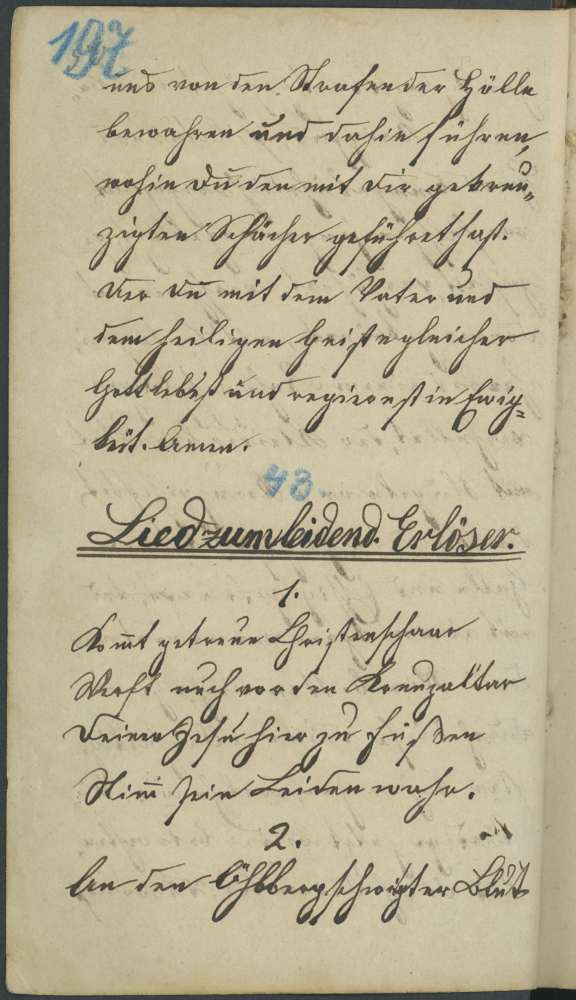 197
uns von den Strafen der Hölle
bewahren und dahin führen,
wohin Du den mit Dir gekreu„
zigten Schächer geführet hast.
Der Du mit dem Vater und
dem heiligen Geiste gleicher
Gott lebest und regierest in Ewig=
keit. Amen.
43.
Lied zum leidend. Erlöser.
1.
Kom̄t getreue Christenschaar
Werft euch vor den Kreuzaltar
Deinem Jesu hier zu Füßen
Nim̄ sein Leiden wahr.
2.
An den Öhlberg schwitzt er Blut